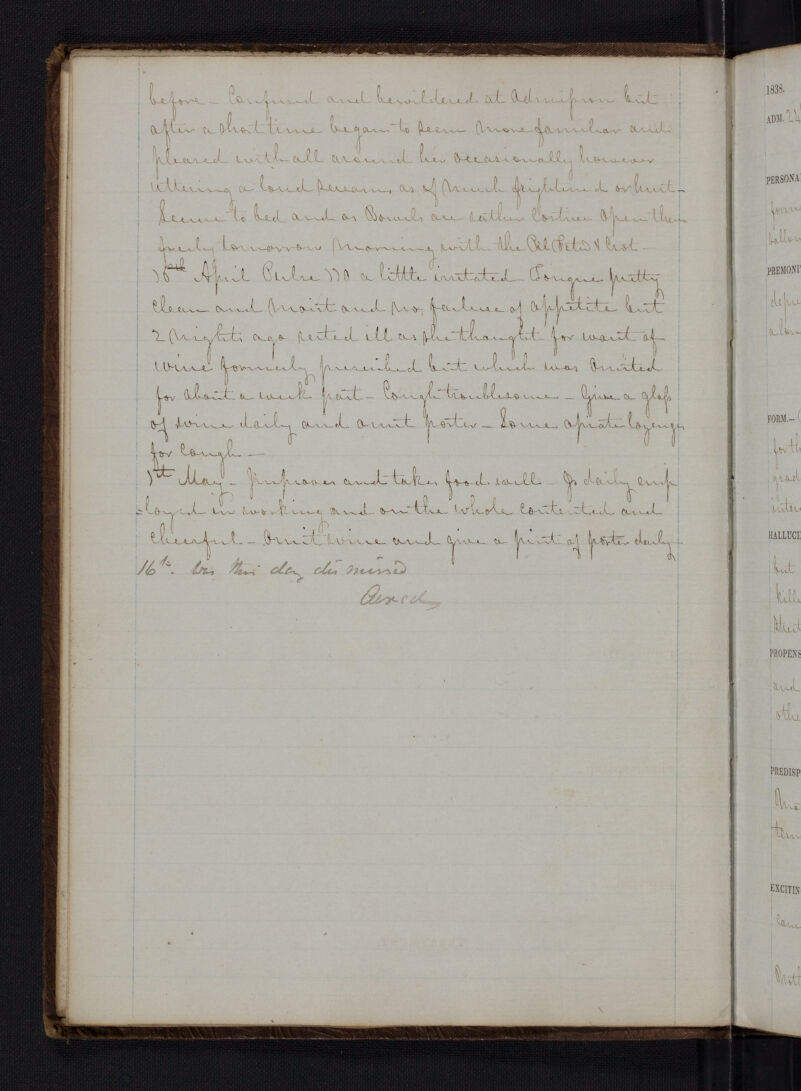 before – Confused and bewildered at Admission but
after a short time began to seem more familiar and
pleased with all around her occasionally however
uttering a loud scream, as if much frightened or hurt –
to bed and as Bowels are rather Costive open them
freely tomorrow morning with the
April Pulse a little irritated Tongue pretty
clean and moist and no failure of appetite but
2 nights ago rested ill as she thought for want of
wine formerly prescribed but which was omitted
for about a week past – Cough troublesome – Give a glass
of wine daily and omit porter – Some opiate lozenges
for Cough –
May – Improves and takes food well – Is daily emp
=loyed in working and on the whole contented and
cheerful – Omit wine and give a pint of porter daily –
16th. Was this day dismissed
Cured
1838.
ADM.
PERSONA
PREMONI
FORM.–
HALLUCI
PROPENS
and
othe
PREDISP
EXCITIN